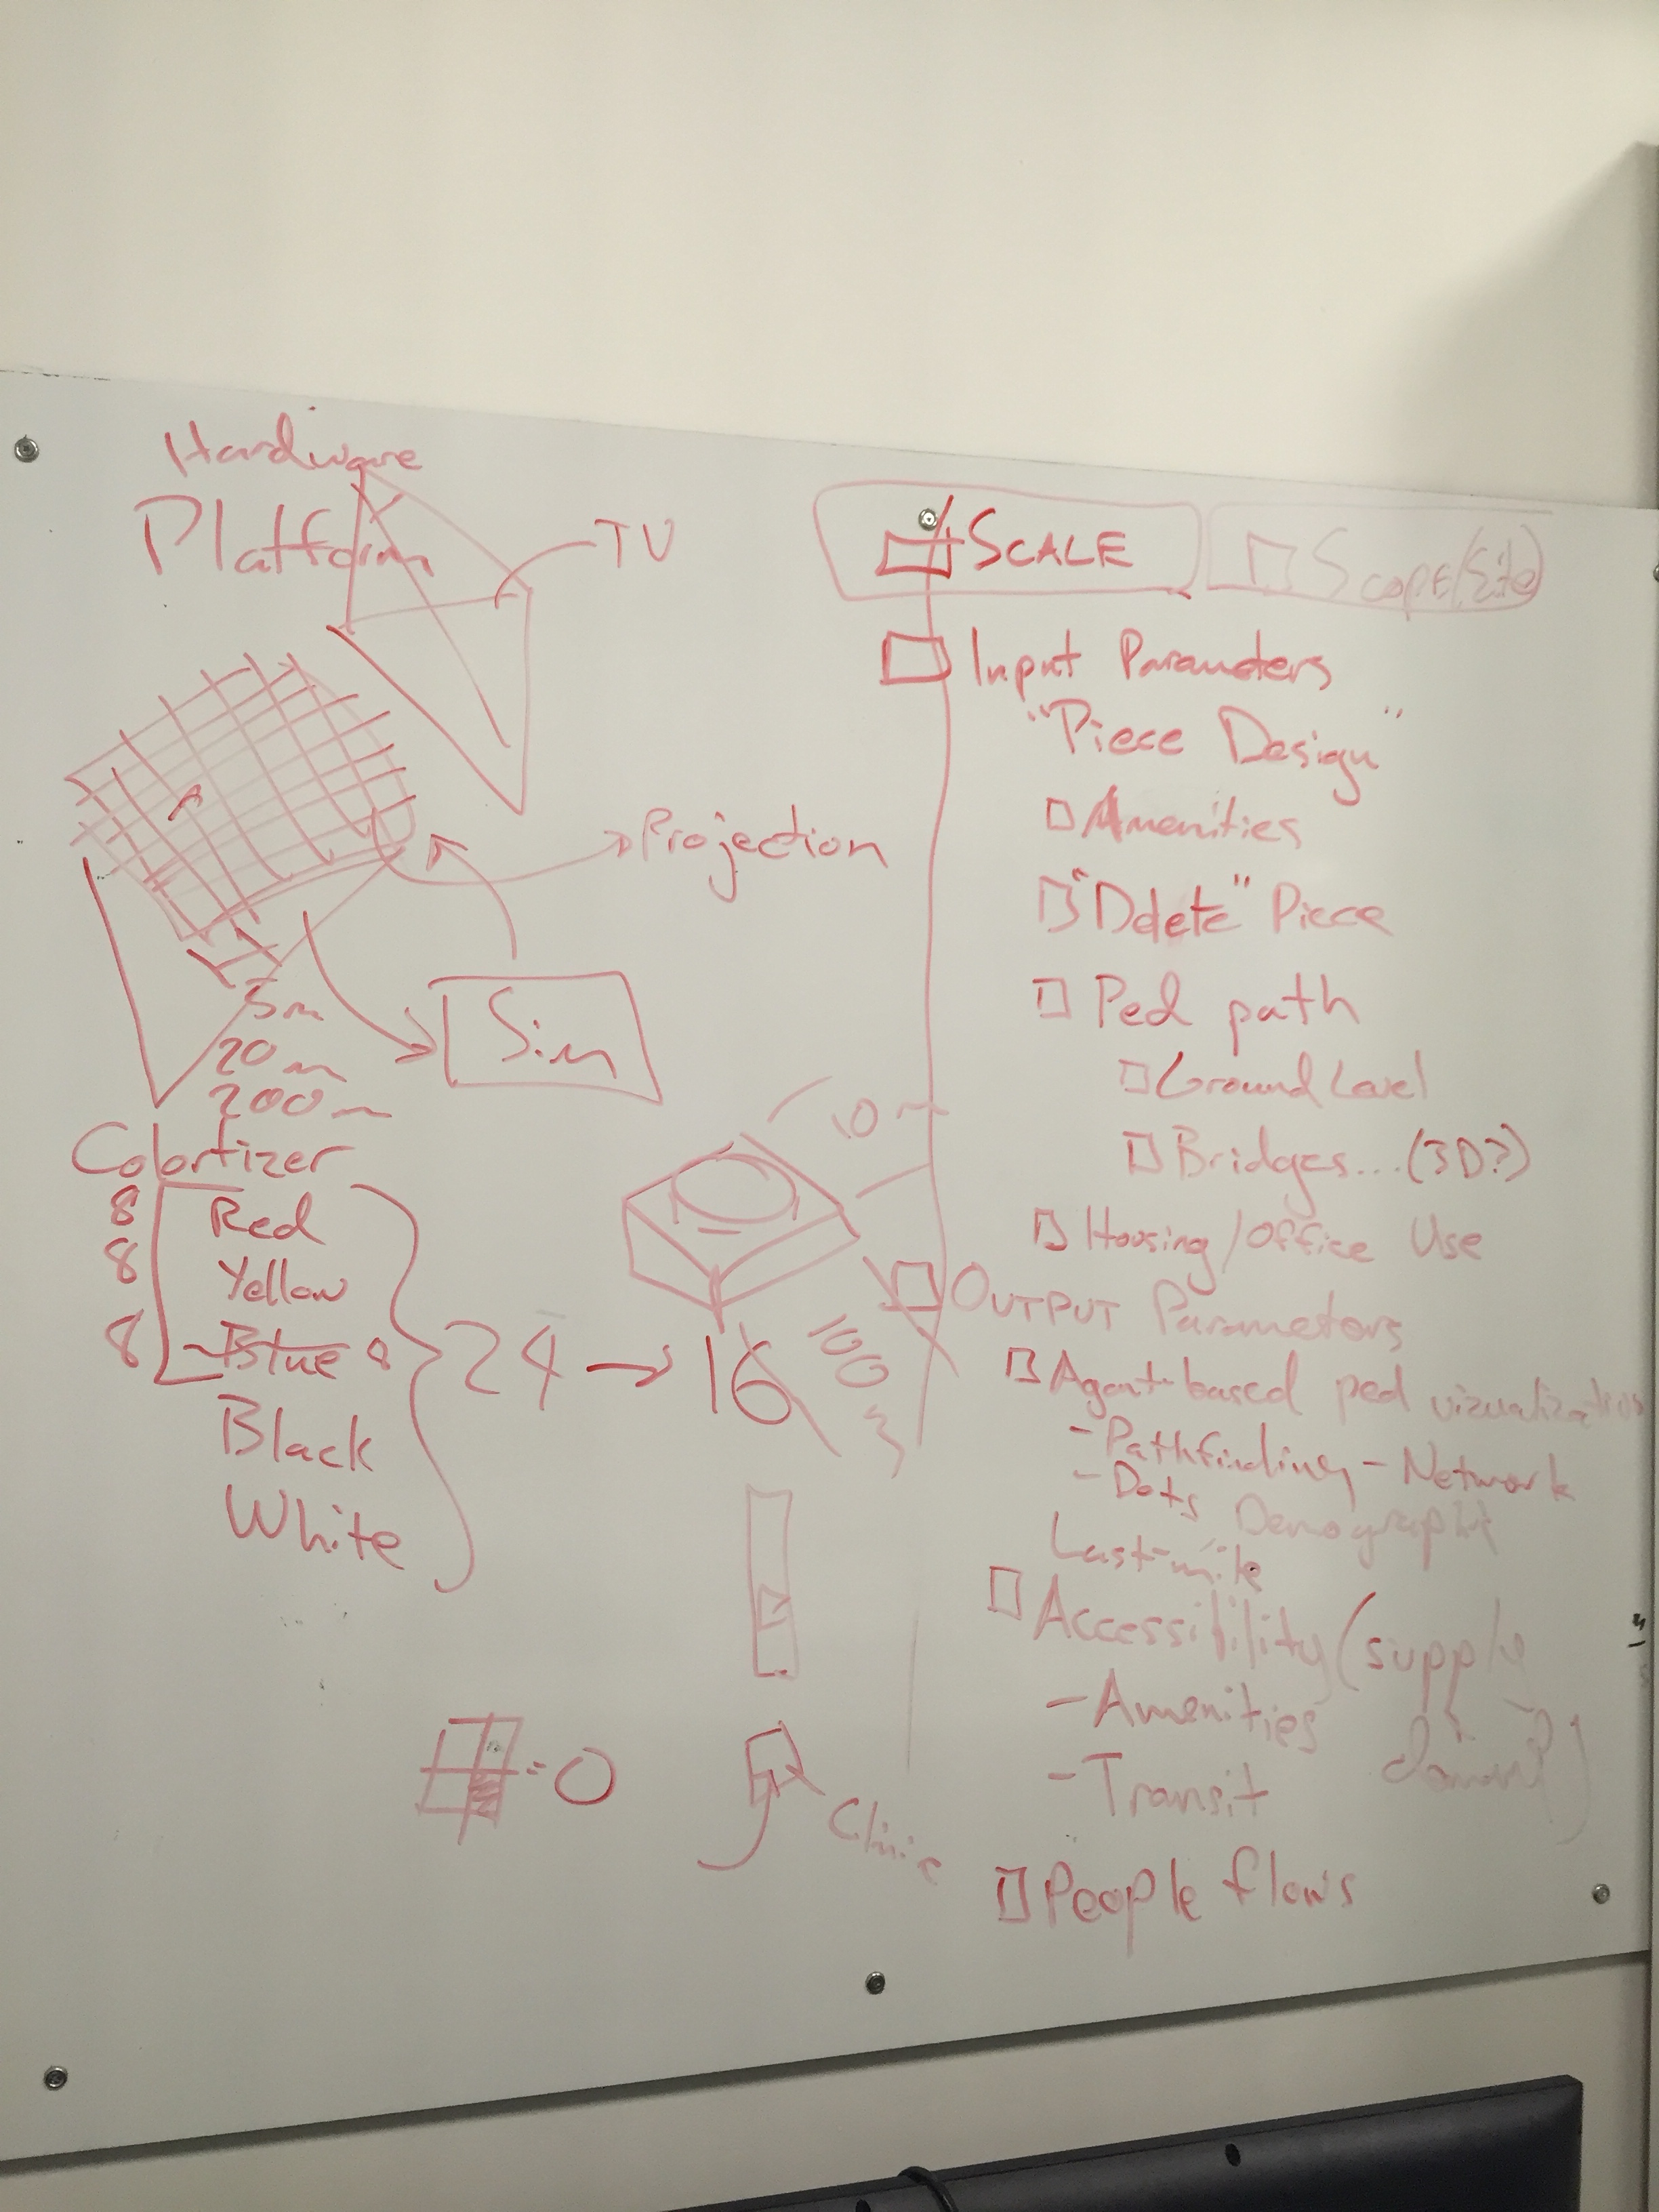 Hardware
Platform
TV
Projection
Sim
5m
20m
200m
Colortizer
8 Red
8 Yellow
8 Blue 8
Black
White
24 → 16
10m
100
= 0
Clinic
SCALE
SCOPE/(Site)
Input Parameters
"Piece Design"
Amenities
"Delete" Piece
Ped path
Ground Level
Bridges...(3D?)
Housing/Office Use
OUTPUT Parameters
Agent-based ped vizualization
- Pathfinding - Network
- Dots Demographic
Last-mile
Accessibility (supply
demand)
- Amenities
- Transit
People flows